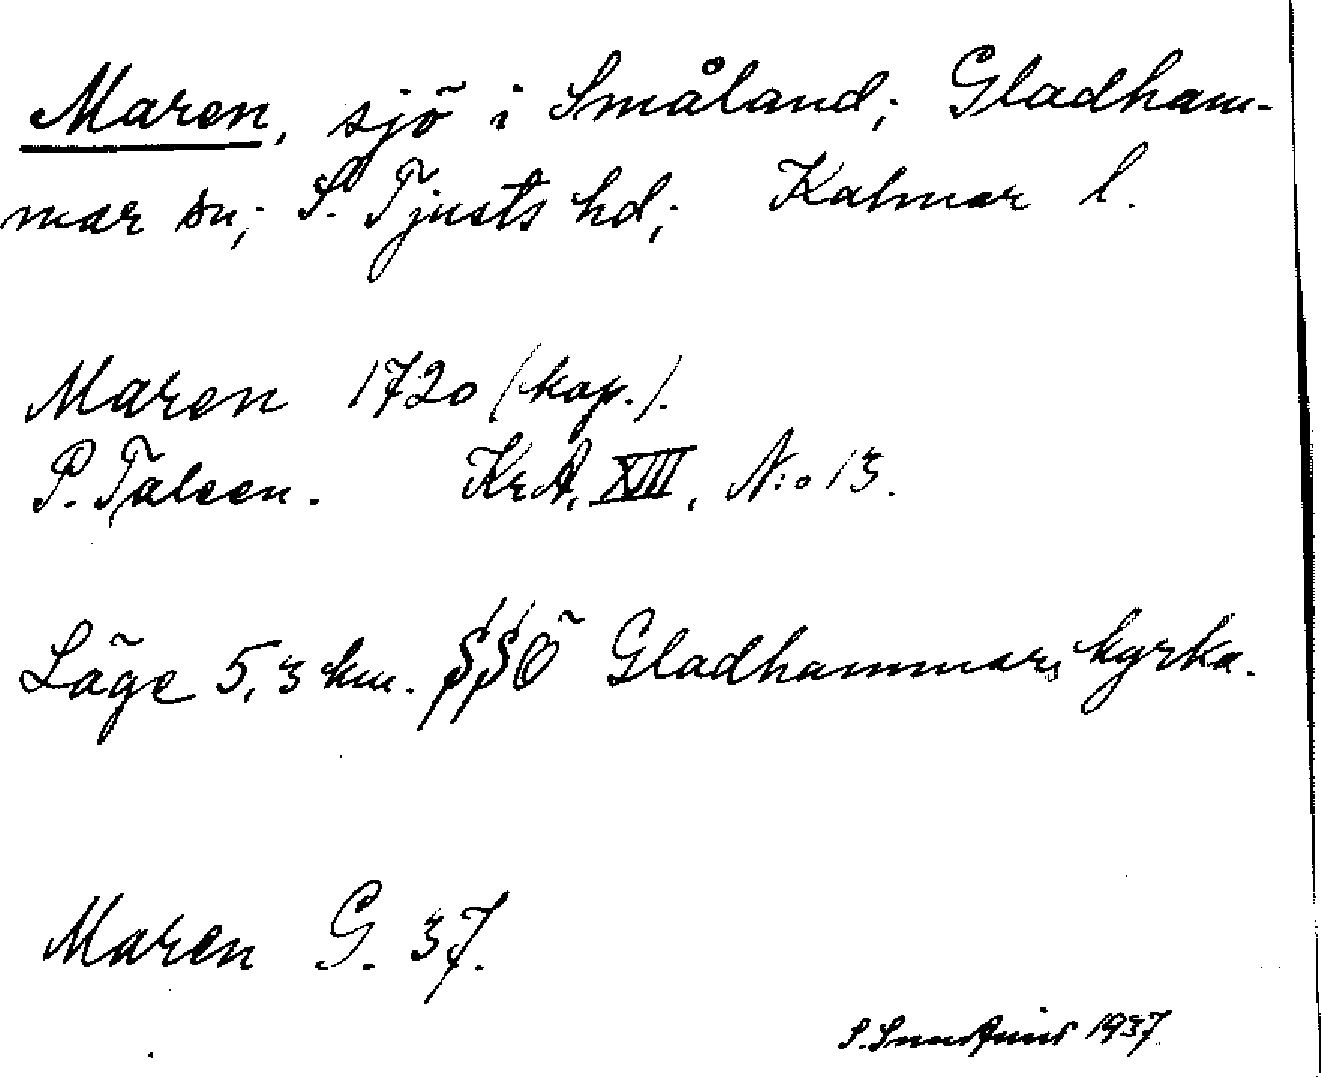 Maren, sjö i Småland; Gladham-
mar sn; S. Tjusts hd; Kalmar l.
Maren 1720 (kop.).
P. Taleen. KrA, XIII, N:o 13.
Läge 5,3 km. SSÖ Gladhammars kyrka.
Maren G. 37.
S. 1937